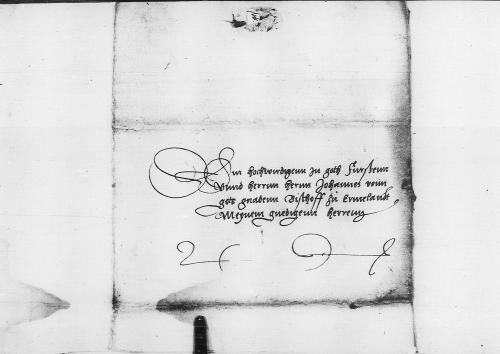 Dem hochwirdigenn In goth furstenn
Vnnd herrnn herrn Johannes vonn
gots gnadenn Bischoff zu Ermelandt
Meynem gnedigenn herrenn